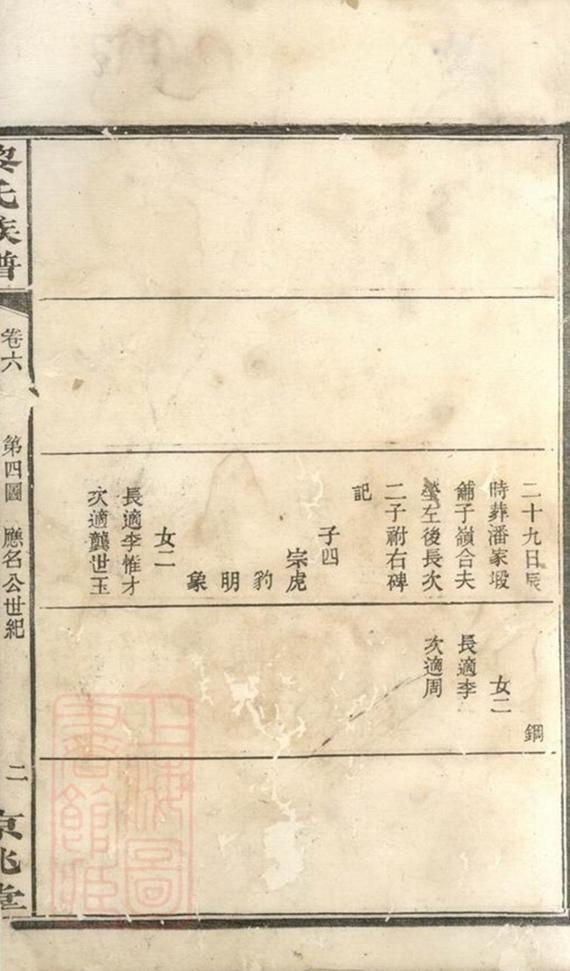 二十九日辰
時葬潘家塅
舖子嶺合夫
塋左後長次
二子祔右碑
記
子四
宗虎
豹
明
象
女二
長適李惟才
次適龔世玉
鋼
女二
長適李
次適周
氏族譜
卷六
第四圖
應名公世紀
二
京兆堂